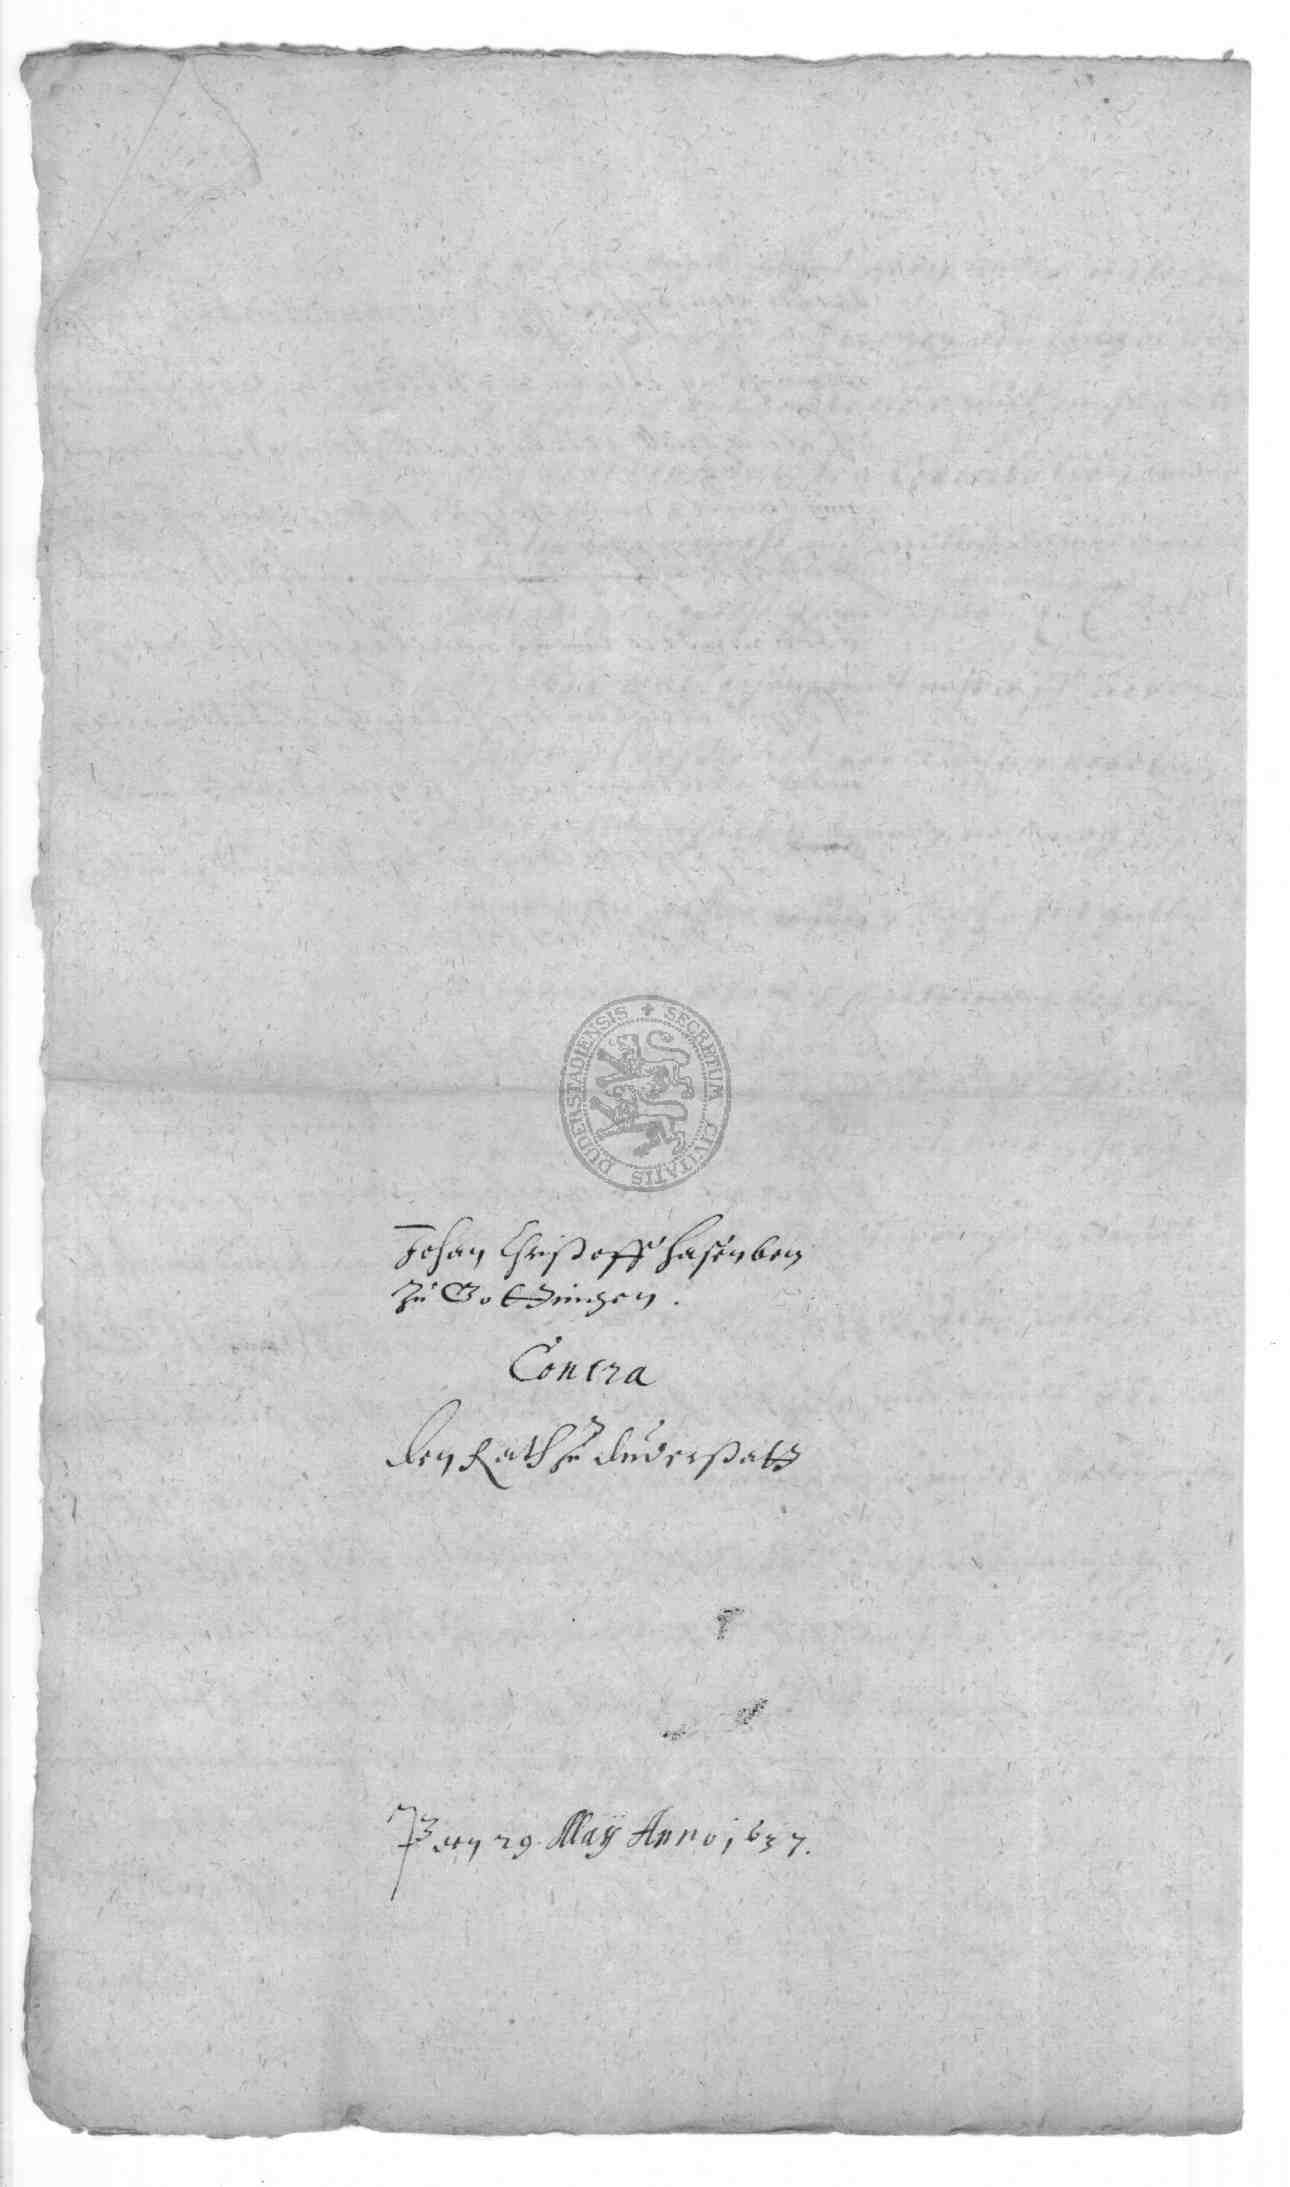 SECRETUM CIVITATIS DUDERSTADIENSIS
Johan Christoff Hasenbein
zu Gottingen.
Contra
den Rath zu Duderstatt
den 29. Maÿ Anno 1637.